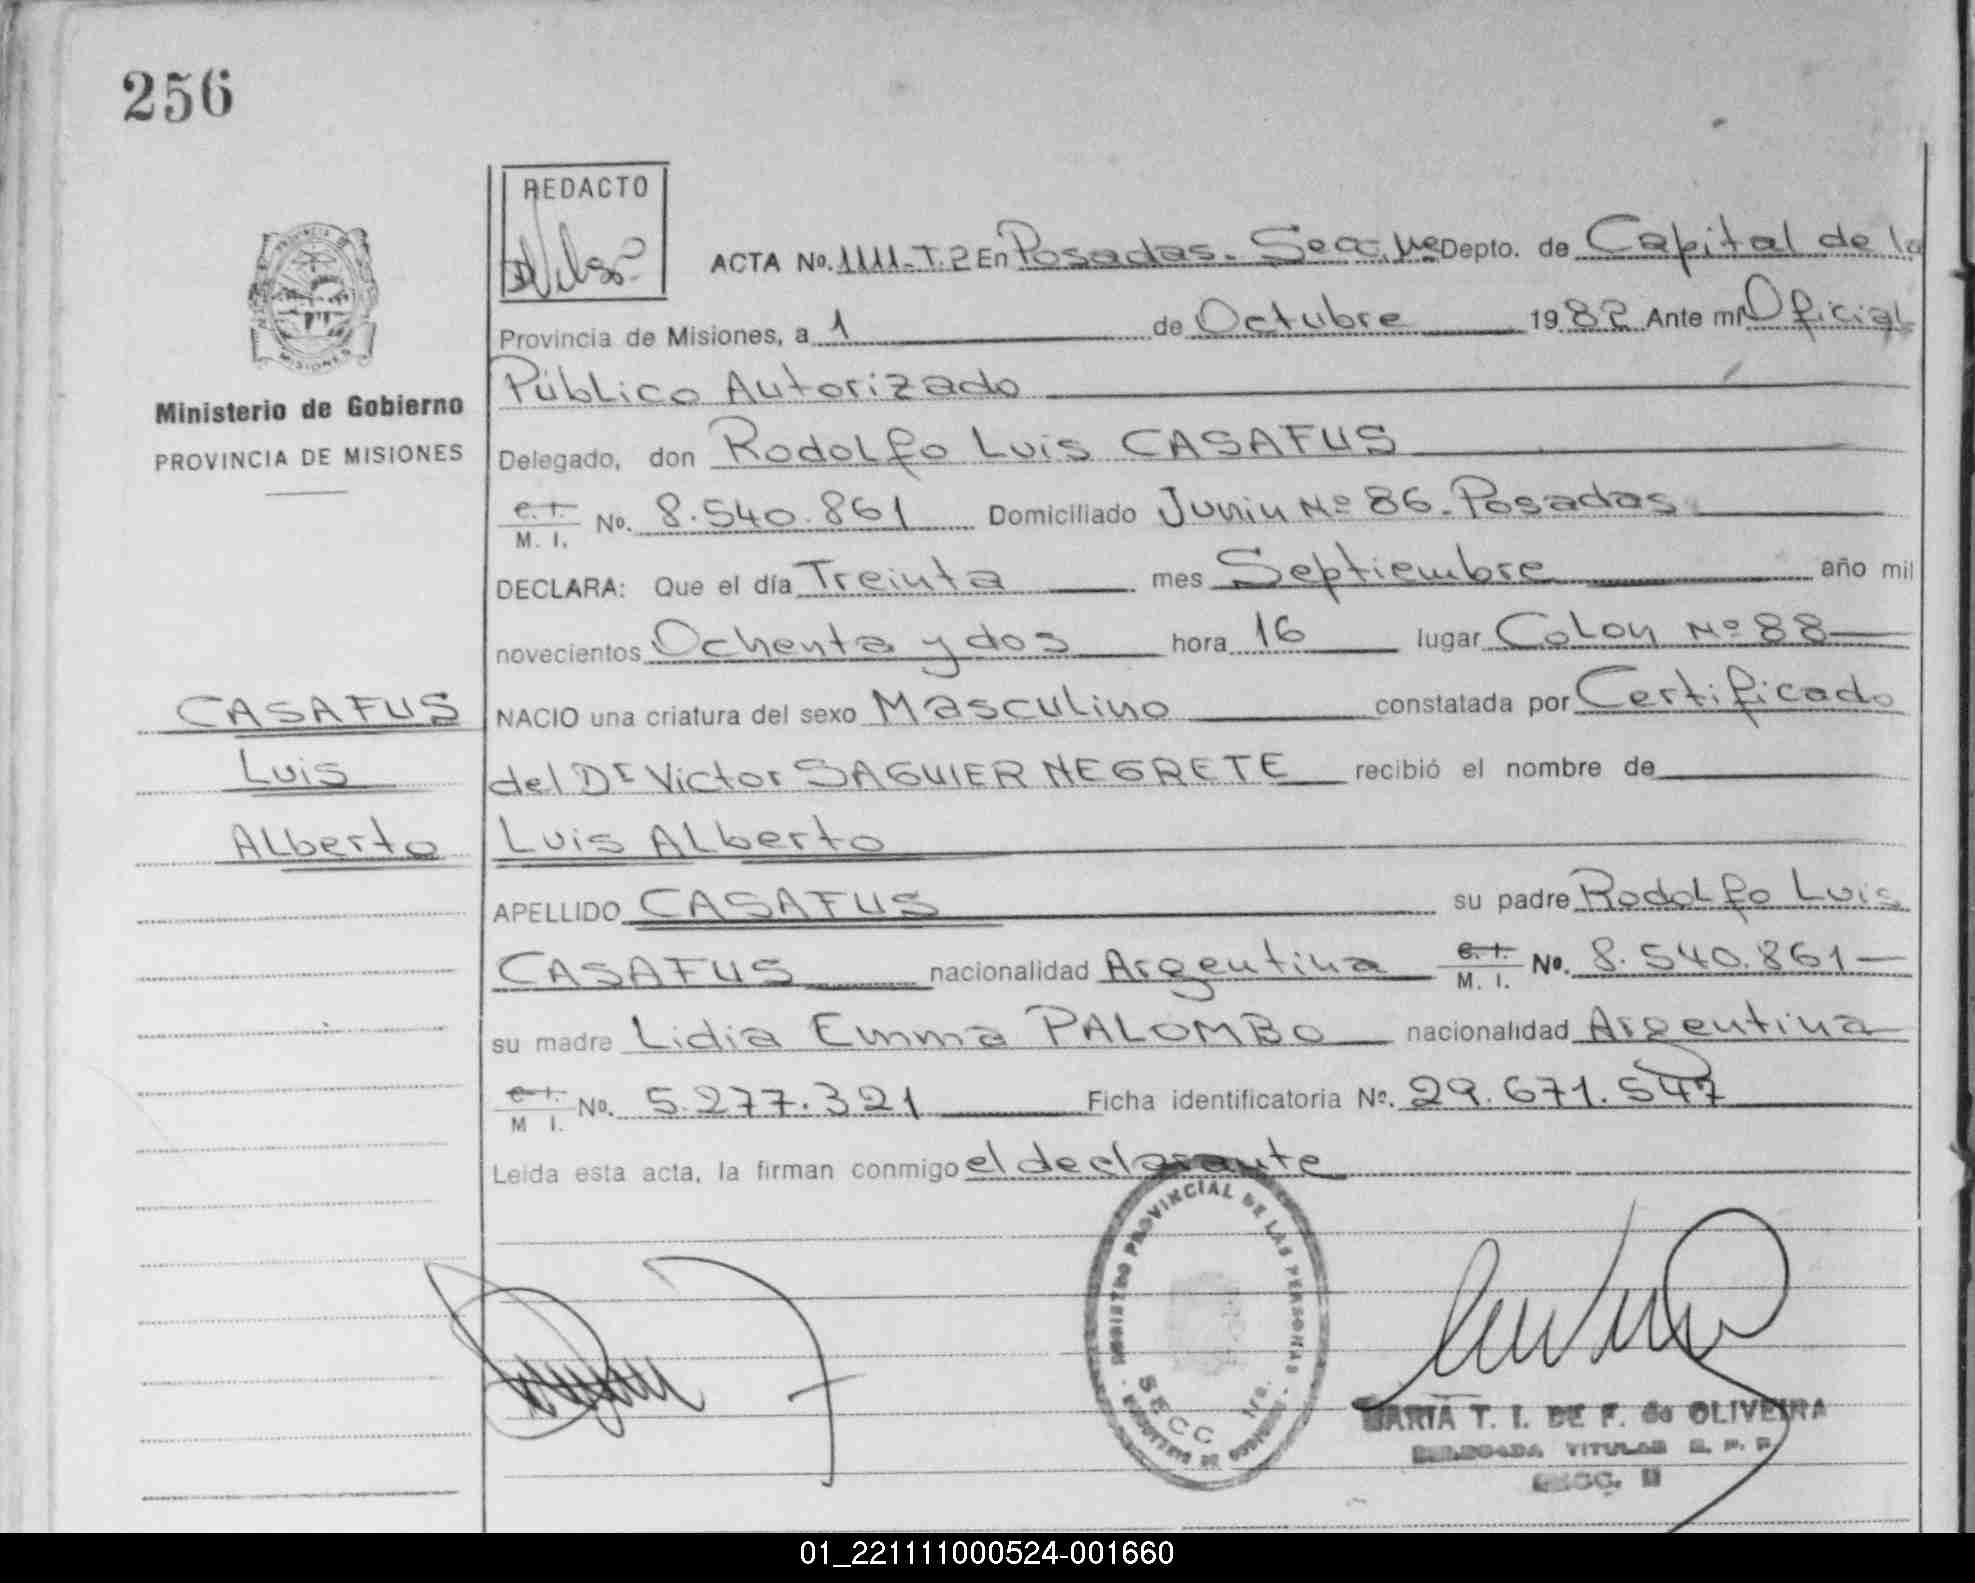 256
REDACTO
ACTA No. 1111-T.2 En Posadas. Secc. Depto. de Capital de la
Provincia de Misiones, a 1 de Octubre 1982 Ante mi Oficial
Público Autorizado
Ministerio de Gobierno
PROVINCIA DE MISIONES
Delegado, don Rodolfo Luis CASAFUS
C. I. M. I. No. 8.540.861 Domiciliado Junin Nº 86. Posadas
DECLARA: Que el día Treinta mes Septiembre año mil
novecientos Ochenta y dos hora 16 lugar Colon Nº 88
CASAFUS
NACIO una criatura del sexo Masculino constatada por Certificado
Luis
del Dr Victor SAGUIER NEGRETE recibió el nombre de
Alberto
Luis Alberto
APELLIDO CASAFUS su padre Rodolfo Luis
CASAFUS nacionalidad Argentina C. I. M. I. No. 8.540.861
su madre Lidia Emma PALOMBO nacionalidad Argentina
C. I. M I. No. 5.277.321 Ficha identificatoria Nº. 29.671.547
Leida esta acta, la firman conmigo el declarante
REGISTRO PROVINCIAL DE LAS PERSONAS
SECC Nro.
MARIA T. I. DE F. de OLIVEIRA
DELEGADA TITULAR R. P. P.
SECC. II
01_221111000524-001660